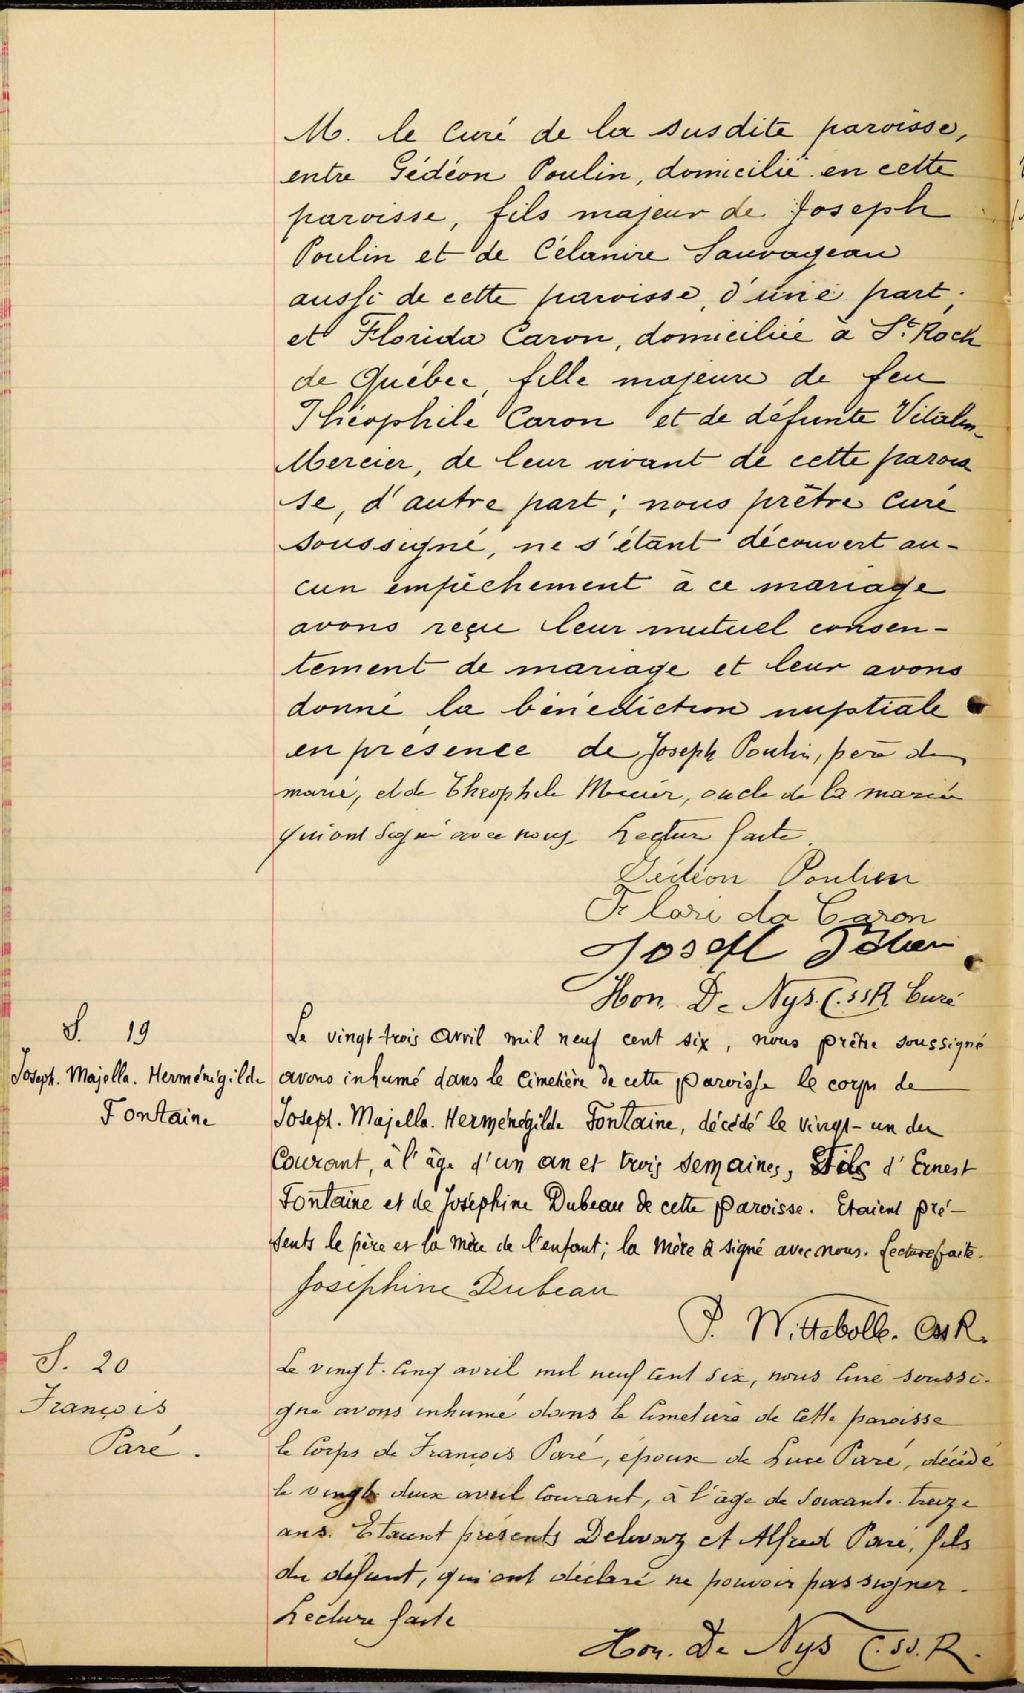 M. le Curé de la susdite paroisse,
entre Gédéon Poulin, domicilié en cette
paroisse, fils majeur de Joseph
Poulin et de Célanire Sauvageau
aussi de cette paroisse, d'une part;
et Florida Caron, domiciliée à St. Roch
de Québec, fille majeure de feu
Théophile Caron et de défunte
Mercier, de leur vivant de cette parois
se, d'autre part; nous prêtre curé
soussigné, ne s'étant découvert au-
cun empêchement à ce mariage
avons reçu leur mutuel consen-
tement de mariage et leur avons
donné la bénédiction nuptiale
en présence de Joseph Poulin, père du
marié, et de Théophile Mercier, oncle de la mariée
qui ont signé avec nous. Lecture faite.
Gédéon Poulien
Florida Caron
Josefh
Hon. De Nys. C.ssR Curé
S. 19
Joseph. Majella. Herménégilde
Fontaine
Le vingt-trois avril mil neuf cent six, nous prêtre soussigné
avons inhumé dans le Cimetière de cette paroisse le corps de
Joseph. Majella. Herménégilde Fontaine, décédé le vingt-un du
Courant, à l'âge d'un an et trois semaines, Fils d'Ernest
Fontaine et de Joséphine Dubeau de cette paroisse. Etaient pré-
sents le père et la mère de l'enfant; la mère a signé avec nous. Lecture faite.
Joséphine Dubeau
P. Wittebolle. CssR.
S. 20
François
Paré.
Le vingt-cinq avril mil neuf cent six, nous curé soussi-
gné avons inhumé dans le Cimetière de cette paroisse
le Corps de François Paré, époux de Luce Paré, décédé
le vingt deux avril courant, à l'âge de soixante-treize
ans. Etaient présents et Alfred Paré, fils
du défunt, qui ont déclaré ne pouvoir pas signer.
Lecture faite
Hon. De Nys C.ss.R.